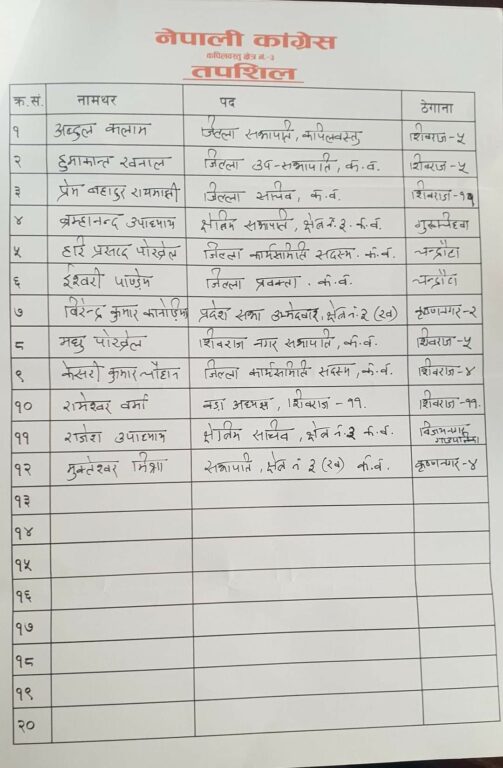 नेपाली कांग्रेस
कपिलवस्तु क्षेत्र नं.-३
तपशिल
क्र.सं. नामथर पद ठेगाना
१ अब्दुल कलाम जिल्ला सभापति, कपिलवस्तु शिवराज-५
२ हुमाकान्त खनाल जिल्ला उप-सभापति, क.व. शिवराज-५
३ प्रेम बहादुर रायमाझी जिल्ला सचिव, क.व. शिवराज-
४ ब्रम्हानन्द उपाध्याय क्षेत्रिय सभापति, क्षेत्र नं. ३. क.व.
५ हरि प्रसाद पोखेल जिल्ला कार्यसमिति सदस्य. क.व. चन्द्रौटा
६ ईश्वरी पाण्डेय जिल्ला प्रवक्ता. क.व. चन्द्रौटा
७ विरेन्द्र कुमार कानोडिया प्रदेश सभा उम्मेदवार, क्षेत्र नं ३ (ख) कृष्णनगर-२
८ मधु पोखेल शिवराज नगर सभापति, क.व. शिवराज-५
९ केसरी कुमार चौहान जिल्ला कार्यसमिति सदस्य, क.व. शिवराज-४
१० रामेश्वर वर्मा वडा अध्यक्ष, शिवराज-११. शिवराज-११.
११ राजेश उपाध्याय क्षेत्रिय सचिव, क्षेत्र नं. ३ क.व.
१२ मुक्तेश्वर मिश्रा सभापति, क्षेत्र नं ३ (ख) क.व. कृष्णनगर-४
१३
१४
१५
१६
१७
१८
१९
२०